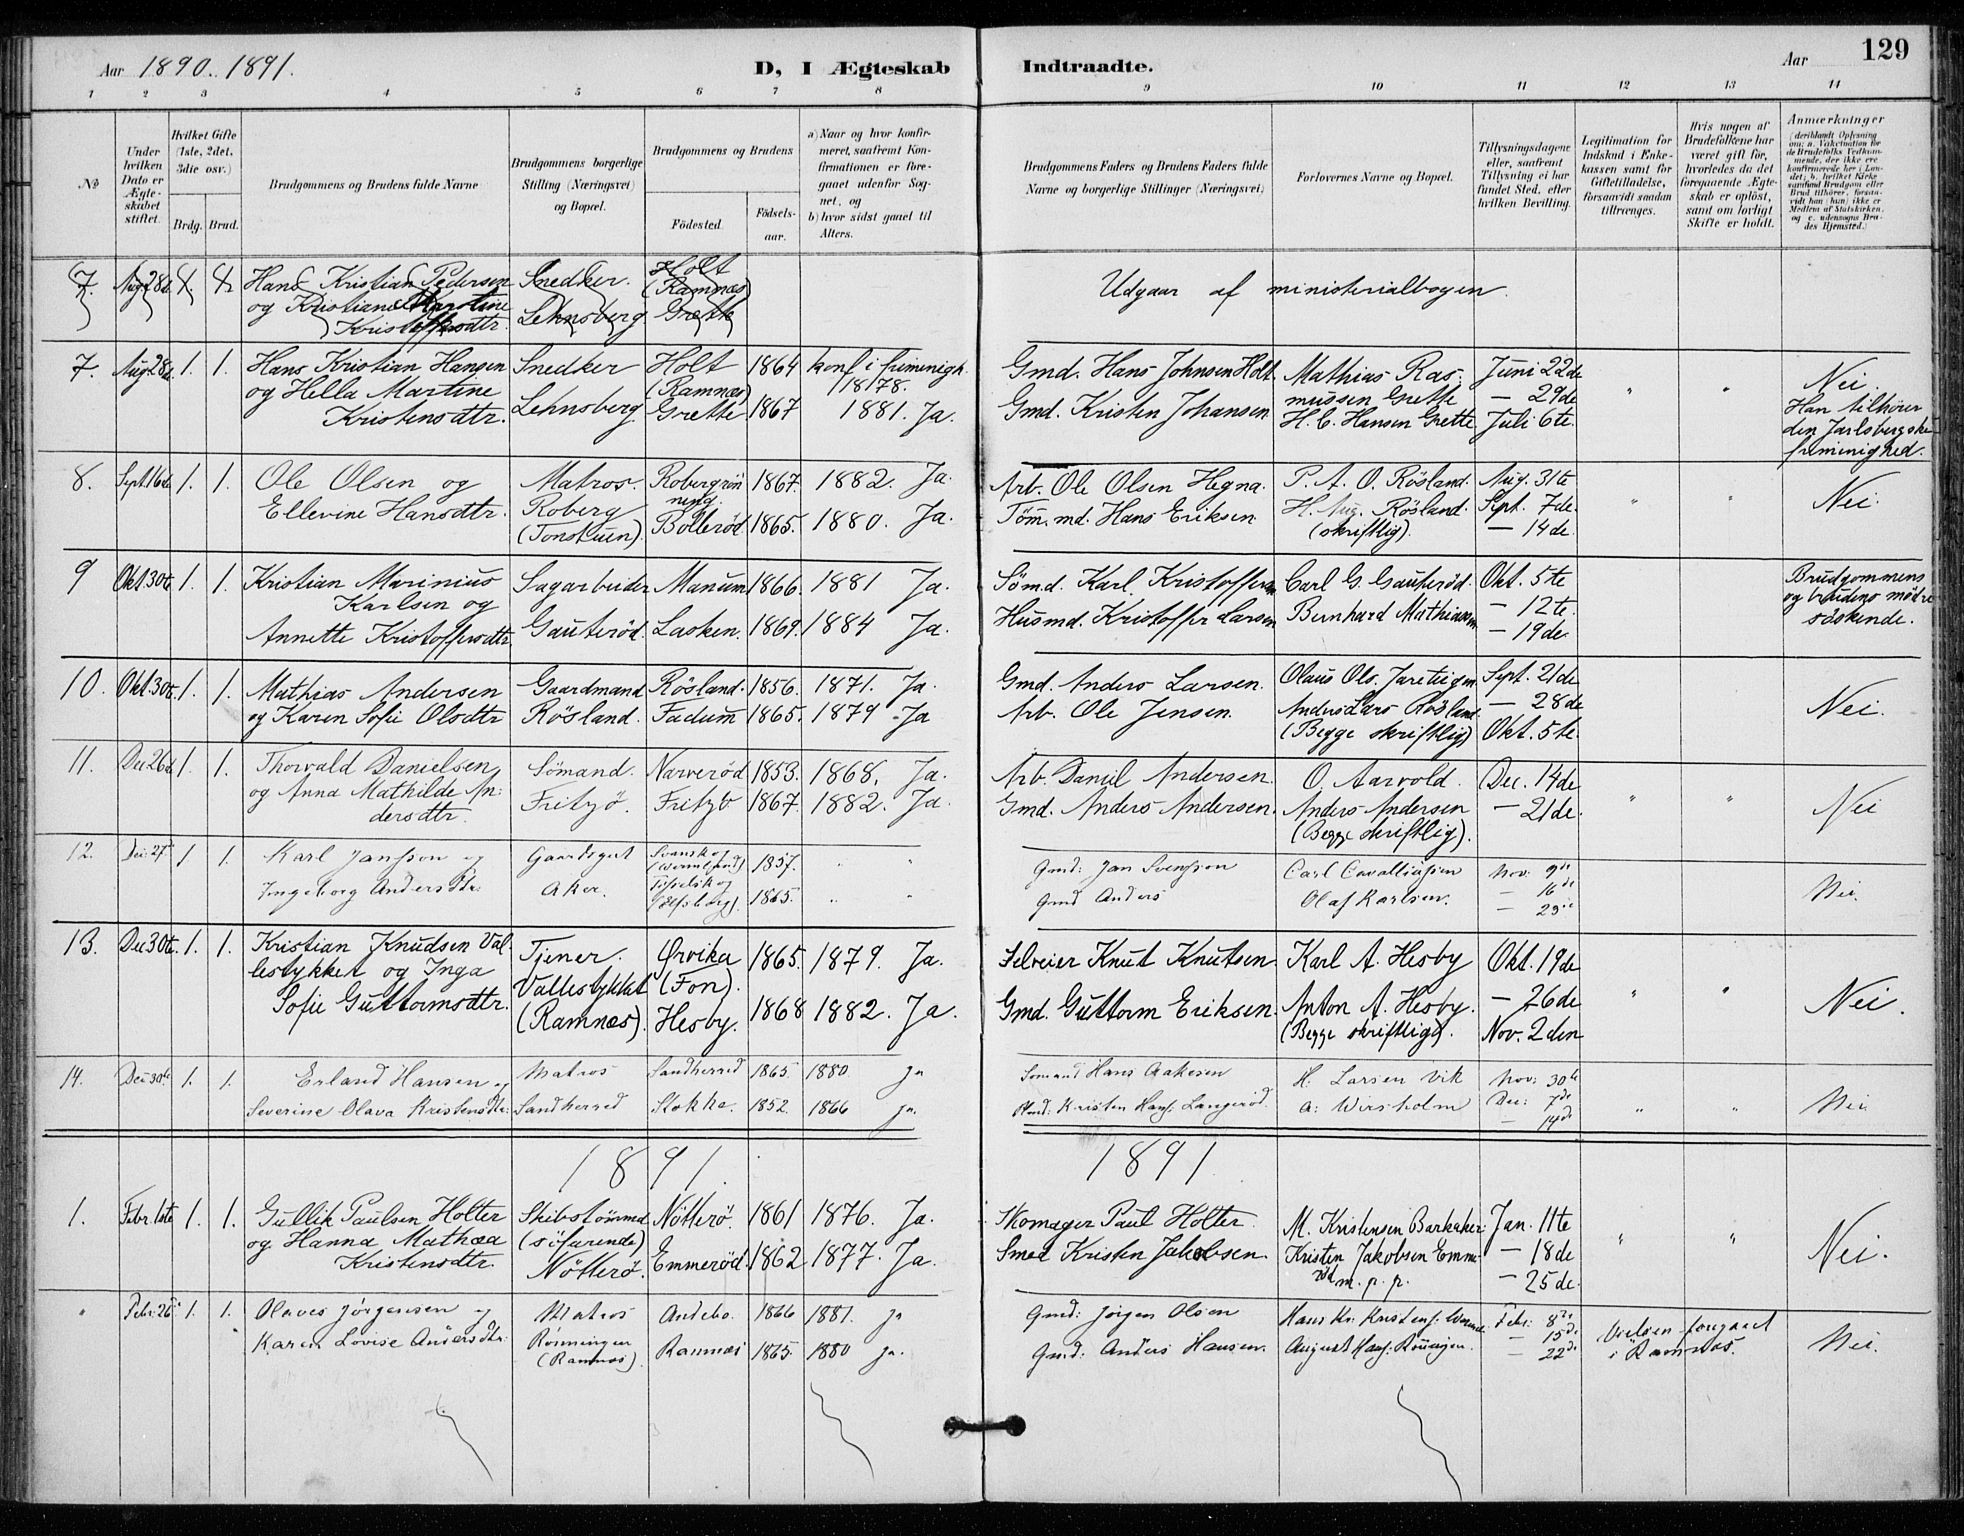 Aar 1890. 1891.
D, I Ægteskab Indtraadte.
Aar 129
1 2 3 4 5 6 7 8 9 10 11 12 13 14
No
Under hvilken Dato er Ægteskabet stiftet.
Hvilket Gifte (1ste, 2det, 3die osv.)
Brdg. Brud.
Brudgommens og Brudens fulde Navne
Brudgommens borgerlige Stilling (Næringsvei) og Bopæl.
Brudgommens og Brudens
Födested.
Födselsaar.
a) Naar og hvor konfirmeret, saafremt Konfirmationen er foregaaet udenfor Sognet, og
b) hvor sidst gaaet til Alters.
Brudgommens Faders og Brudens Faders fulde Navne og borgerlige Stillinger (Næringsvei)
Forlovernes Navne og Bopæl.
Tillysningsdagene eller, saafremt Tillysning ei har fundet Sted, efter hvilken Bevilling.
Legitimation for Indskud i Enkekassen samt for Giftetilladelse, forsaavidt saadan tiltrænges.
Hvis nogen af Brudefolkene har været gift før, hvorledes da det foregaaende Ægteskab er oplöst, samt om lovligt Skifte er holdt.
Anmærkninger
7. Aug. 28de 1. 1. Hans Kristian Pedersen Snedker. Holt
og Kristiane Martine Lehnsberg (Ramnæs)
Kristoffersdtr. Grette
Udgaar af ministerialbogen.
7. Aug 28de 1. 1. Hans Kristian Hansen Snedker Holt 1864 konf. i friminigh. Gmd. Hans Johnsen Holt Mathias Ras- Juni 22de " " Nei.
og Hella Martine (Ramnæs) 1878. mussen Grette — 29de Han tilhörer
Kristensdtr. Lehnsberg. Grette 1867 1881. Ja. Gmd. Kristen Johansen H. C. Hansen Grette Juli 6te. den Jarlsbergske
friminighed.
8. Sept. 16de 1. 1. Ole Olsen og Matros. Robergrön 1867. 1882. Ja. Arb. Ole Olsen Hegna. P. A. O. Rösland. Aug. 31te " " Nei
Ellevine Hansdtr. Roberg Bolleröd 1865. 1880. Ja. Töm.md. Hans Eriksen H. Aug. Rösland. Sept. 7de.
(Tonstuen). (skriftlig). — 14de.
9 Okt. 30te. 1. 1. Kristian Marinius Sagarbeider Manum 1866. 1881 Ja. Sömd. Karl Kristoffersen Carl G. Gauteröd. Okt. 5te Brudgommens
Karlsen og — 12te. og brudens mödre
Annette Kristoffersdtr. Gauteröd. Lasken. 1869. 1884 Ja. Husmd. Kristoffer Larsen Bernhard Mathiassen — 19de södskende.
10. Okt. 30te. 1. 1. Mathias Andersen Gaardmand Rösland. 1856. 1871. Ja. Gmd. Anders Larsen. Olaus Ols. Sept. 21de
og Karen Sofie Olsdtr Rösland. Fadum 1865. 1879 Ja Arb. Ole Jensen. Anders Lars. Rösland. — 28de Nei.
(Begge skriftlig) Okt. 5te.
11. Dec 26de 1. 1. Thorvald Danielsen Sömand. Narveröd 1853. 1868. Ja. Arb. Daniel Andersen. O. Aarvold. Dec. 14de
og Anna Mathilde An- Fritzö. Fritzö 1867. 1882. Ja. Gmd. Anders Andersen. Anders Andersen — 21de. " " Nei
dersdtr. (Begge skriftlig).
12. Dec: 27 1 1. Karl Janfson og Gaardsgut Svensk og 1857. " " Gmd: Jan Svenfson Carl Cavalliafsen Nov: 9de
Ingeborg Andersdtr: Aker. 1865. " " Gmd Anders Olaf Karlsen. — 16de Nei.
— 23de
13. Dec 30te. 1. 1. Kristian Knudsen Val- Tjener. Ørvika 1865. 1879. Ja. Selveier Knut Knutsen Karl A. Hesby Okt. 19de
lestykket og Inga Vallestykket (Fon). " "
Sofie Guttormsdtr. (Ramnæs). Hesby. 1868 1882. Ja. Gmd. Guttorm Eriksen. Anton A. Hesby. — 26de Nei.
(Begge skriftlig). Nov. 2den
14. Dec 30te 1. 1. Erland Hansen og Matros Sandherred 1865. 1880 Ja Sömand Hans Aakesen H. Larsen Vik Nov: 30te
Severine Olava Kristensdtr: Sandherred Stokke. 1852. 1866 ja. Kristen Hans: Langeröd. A: Wirsholm Dec: 7de " " Nei.
— 14de
1891. 1891.
1. Febr. 1ste 1. 1. Gullik Paulsen Holter Skibstömmd Nötterö. 1861 1876. Ja. Skomager Paul Holter. M. Kristensen Barkaker Jan. 11te " "
og Hanna Mathea (söfarende) Emmeröd. 1862 1877. Ja. Smed Kristen Jakobsen. Kristen Jakobsen Emme- — 18de Nei.
Kristensdtr. Nötterö. röd m. p. p. — 25de.
" Febr: 26 1. 1. Olaves Jörgensen og Matros Andebo. 1866 1881. ja Gmd: Jörgen Olsen Hans Kr: Kristens: Febr: 8de Vielsen foregaaet
Karen Lovise Andersdtr: Rönningen Ramnæs 1865. 1880 ja. Gmd: Anders Hansen. August Hans: Rönnigen. — 15de i Ramnæs. Nei.
(Ramnæs). — 22de